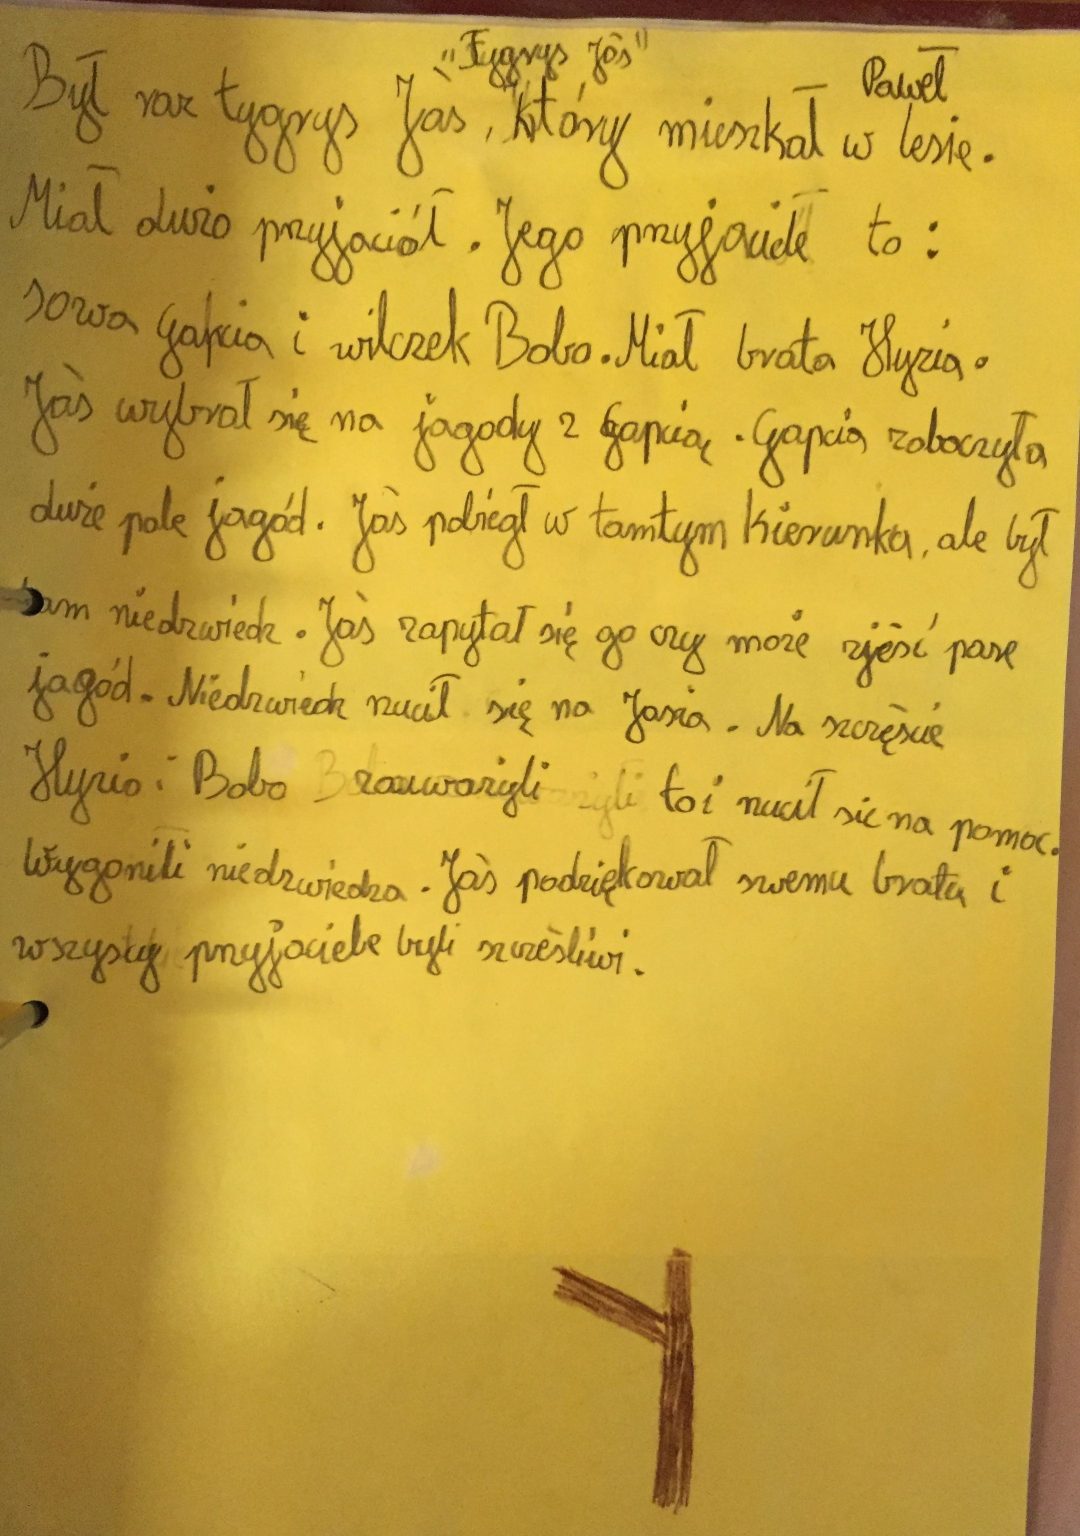 "Tygrys Jaś"
Paweł
Był raz tygrys Jaś, który mieszkał w lesie.
Miał dużo przyjaciół. Jego przyjaciele to:
sowa Gapcia i wilczek Bobo. Miał brata Hyzia.
Jaś wybrał się na jagody z Gapcią. Gapcia zobaczyła
duże pole jagód. Jaś pobiegł w tamtym kierunku, ale był
tam niedzwiedz. Jaś zapytał się go czy może zjeść parę
jagód. Niedzwiedz rzucił się na Jasia. Na szczęście
Hyzio i Bobo zauwarzyli to i rzucił sie na pomoc.
Wygonili niedzwiedza. Jaś podziękował swemu bratu i
wszyscy przyjaciele byli szczęśliwi.